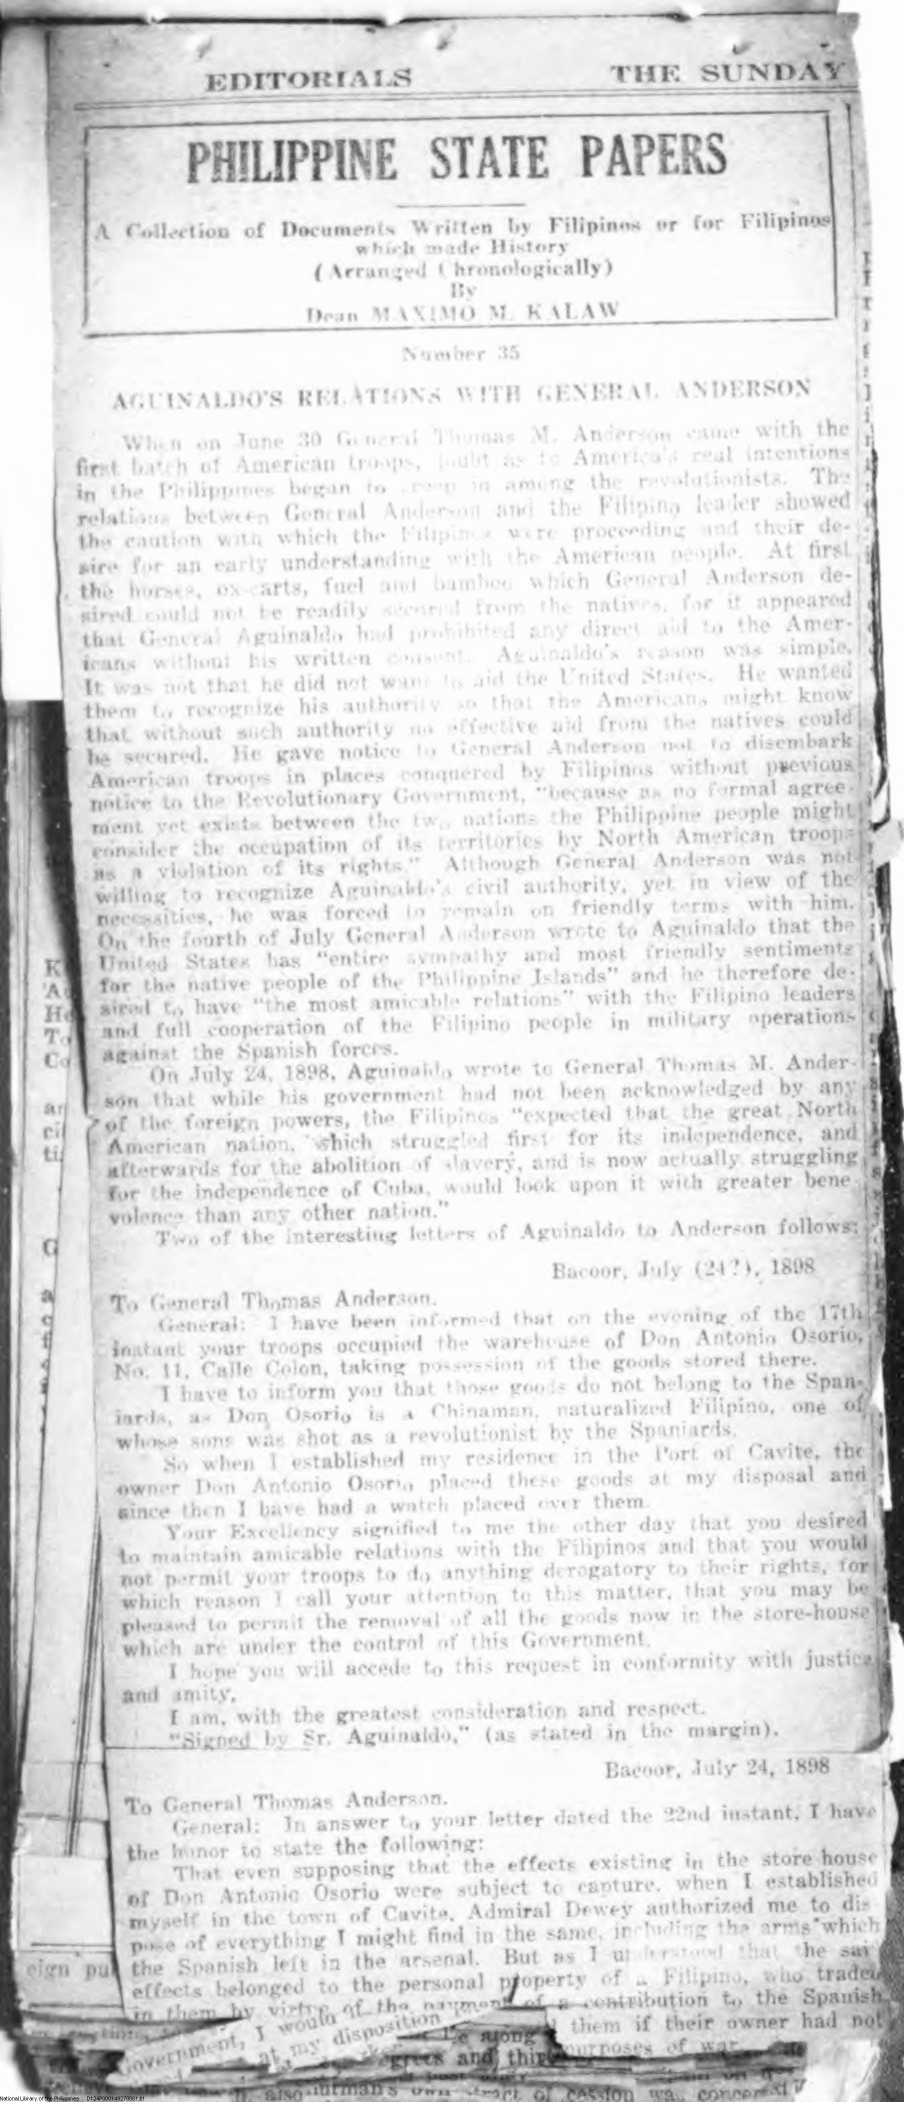 EDITORIALS THE SUNDAY
PHILIPPINE STATE PAPERS
A Collection of Documents Written by Filipinos or for Filipinos
which made History
(Arranged Chronologically)
By
Dean MAXIMO M. KALAW
Number 35
AGUINALDO'S RELATIONS WITH GENERAL ANDERSON
When on June 30 General Thomas M. Anderson came with the
first batch of American troops, doubt as to America's real intentions
in the Philippines began to creep in among the revolutionists. The
relations between General Anderson and the Filipino leader showed
the caution with which the Filipinos were proceeding and their de-
sire for an early understanding with the American people. At first
the horses, ox-carts, fuel and bamboo which General Anderson de-
sired could not be readily secured from the natives, for it appeared
that General Aguinaldo had prohibited any direct aid to the Amer-
icans without his written consent. Aguinaldo's reason was simple.
It was not that he did not want to aid the United States. He wanted
them to recognize his authority so that the Americans might know
that without such authority no effective aid from the natives could
be secured. He gave notice to General Anderson not to disembark
American troops in places conquered by Filipinos without previous
notice to the Revolutionary Government, "because as no formal agree-
ment yet exists between the two nations the Philippine people might
consider the occupation of its territories by North American troops
as a violation of its rights." Although General Anderson was not
willing to recognize Aguinaldo's civil authority, yet in view of the
necessities, he was forced to remain on friendly terms with him.
On the fourth of July General Anderson wrote to Aguinaldo that the
United States has "entire sympathy and most friendly sentiments
for the native people of the Philippine Islands" and he therefore de-
sired to have "the most amicable relations" with the Filipino leaders
and full cooperation of the Filipino people in military operations
against the Spanish forces.
On July 24, 1898, Aguinaldo wrote to General Thomas M. Ander-
son that while his government had not been acknowledged by any
of the foreign powers, the Filipinos "expected that the great North
American nation, which struggled first for its independence, and
afterwards for the abolition of slavery, and is now actually struggling
for the independence of Cuba, would look upon it with greater bene-
volence than any other nation."
Two of the interesting letters of Aguinaldo to Anderson follows:
Bacoor, July (24?), 1898
To General Thomas Anderson.
General: I have been informed that on the evening of the 17th
instant your troops occupied the warehouse of Don Antonio Osorio,
No. 11, Calle Colon, taking possession of the goods stored there.
I have to inform you that those goods do not belong to the Span-
iards, as Don Osorio is a Chinaman, naturalized Filipino, one of
whose sons was shot as a revolutionist by the Spaniards.
So when I established my residence in the Port of Cavite, the
owner Don Antonio Osorio placed these goods at my disposal and
since then I have had a watch placed over them.
Your Excellency signified to me the other day that you desired
to maintain amicable relations with the Filipinos and that you would
not permit your troops to do anything derogatory to their rights, for
which reason I call your attention to this matter, that you may be
pleased to permit the removal of all the goods now in the store-house
which are under the control of this Government.
I hope you will accede to this request in conformity with justice
and amity.
I am, with the greatest consideration and respect.
"Signed by Sr. Aguinaldo," (as stated in the margin).
Bacoor, July 24, 1898
To General Thomas Anderson.
General: In answer to your letter dated the 22nd instant, I have
the honor to state the following:
That even supposing that the effects existing in the store-house
of Don Antonio Osorio were subject to capture, when I established
myself in the town of Cavite, Admiral Dewey authorized me to dis-
pose of everything I might find in the same, including the arms which
the Spanish left in the arsenal. But as I understood that the said
effects belonged to the personal property of a Filipino, who traded
in them by virtue of the payment of a contribution to the Spanish
Government, I would
them if their owner had not
at my disposition
purposes of war
National Library of the Philippines